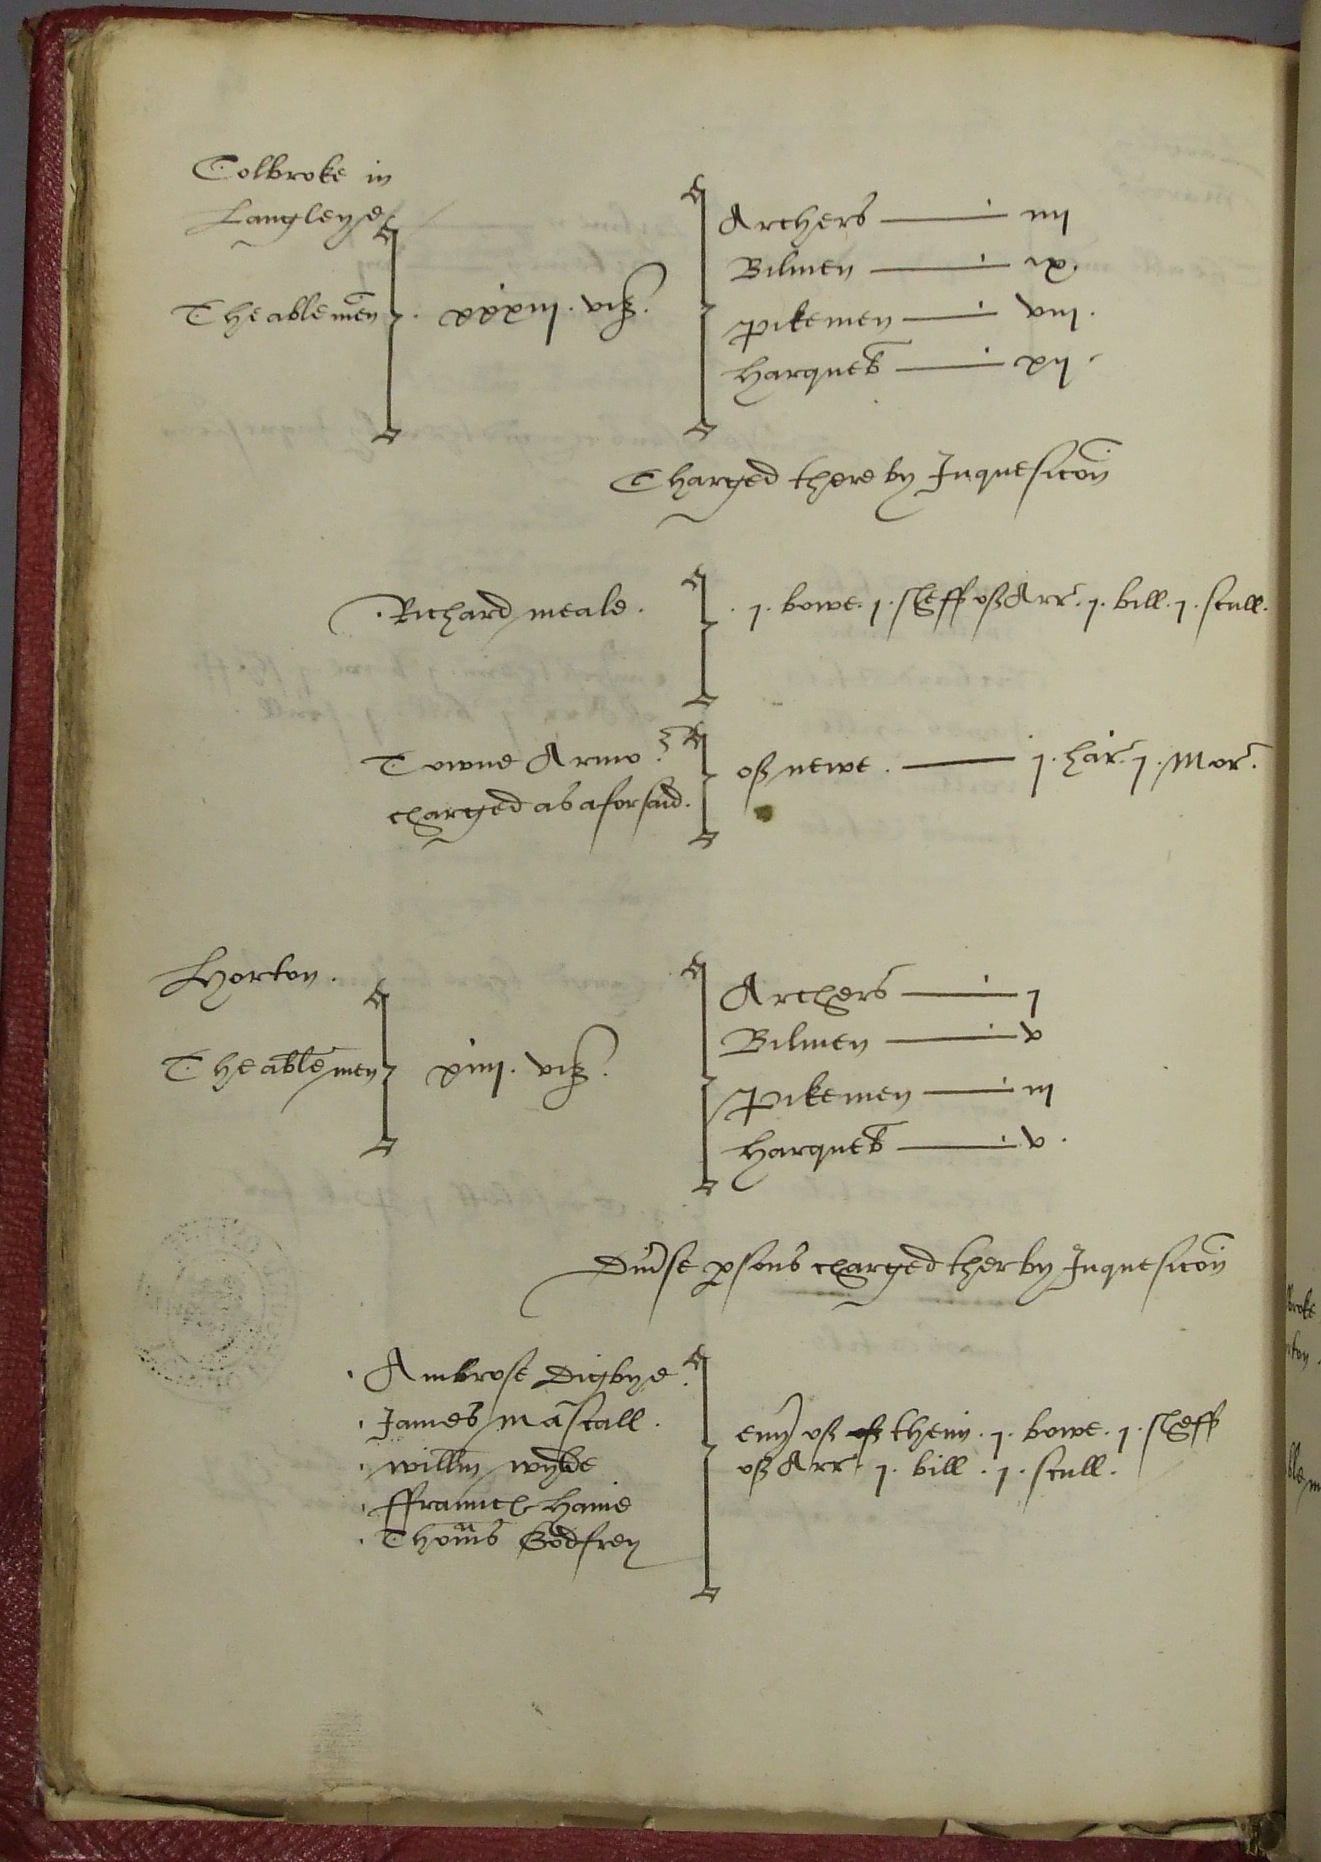 Colbroke in
Langleye
The able men xxxiij. viz.
Archers — iiij
Bilmen — ix.
Pikemen — viij.
Harqueb — xij.
Charged there by Inquesicon
Richard Meale. j. bowe. j. sheff of Arr. j. bill. j. scull.
Towne Armor
charged as aforsaid.
of newe. — j. har. j. Mor.
Horton.
The able men xiiij. viz.
Archers — j
Bilmen — v
Pikemen — iij
Harqueb — v.
Divse psons charged ther by Inquesicon
Ambrose Digbye.
James Mascall.
Willm Wylde
Thoms Godfrey
evy of them. j. bowe. j. sheff
of Arr. j. bill. j. scull.